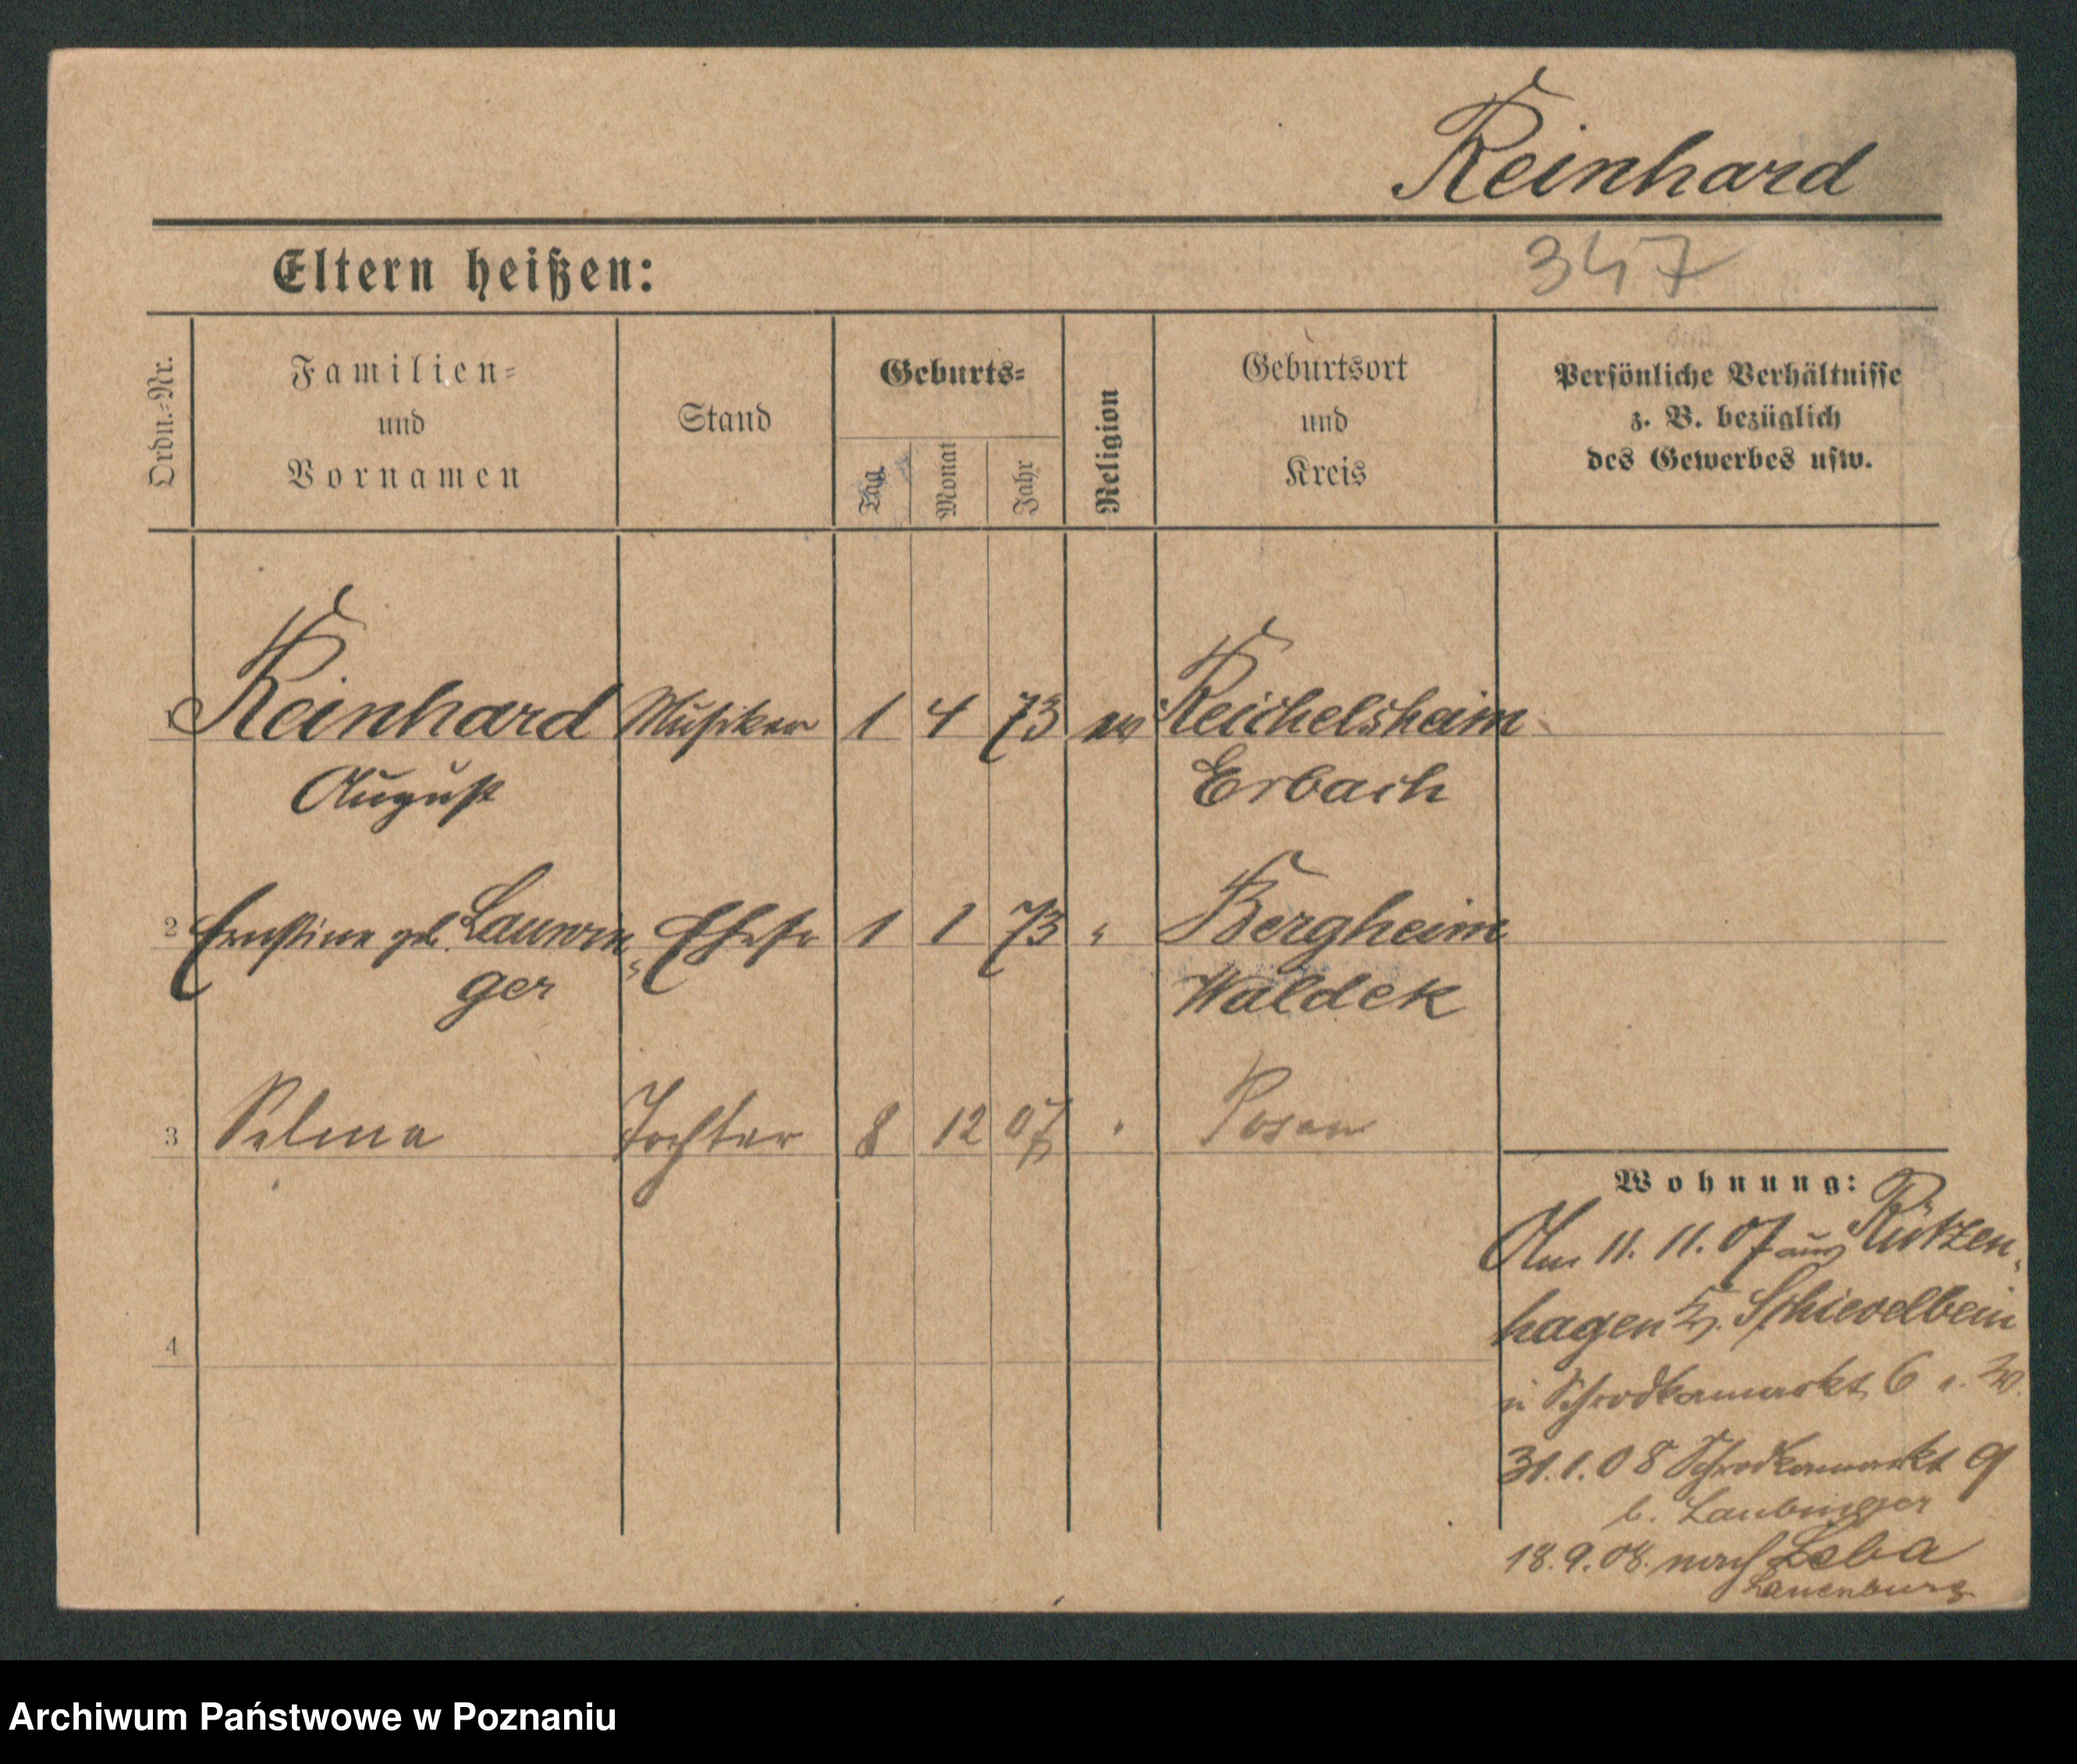 Reinhard
Eltern heißen:
347
Ordn.-Nr.
Familien-
und
Vornamen
Stand
Geburts-
Tag
Monat
Jahr
Religion
Geburtsort
und
Kreis
Persönliche Verhältnisse
z. B. bezüglich
des Gewerbes usw.
1 Reinhard Musiker 1 4 73 Reichelsheim
August Erbach
2 Ernstine geb. Lauwin- Ehefr 1 1 73 " Bergheim
ger Waldek
3 Selma Tochter 8 12 07 " Posen
4
Wohnung:
Am 11. 11. 07 aus Rützen-
hagen Schievelbein
n Schrodkamarkt 6
31.1.08 Schrodkamarkt 9
b. Laubinger
18.9.08. nach Leba
Lauenburg
Archiwum Państwowe w Poznaniu